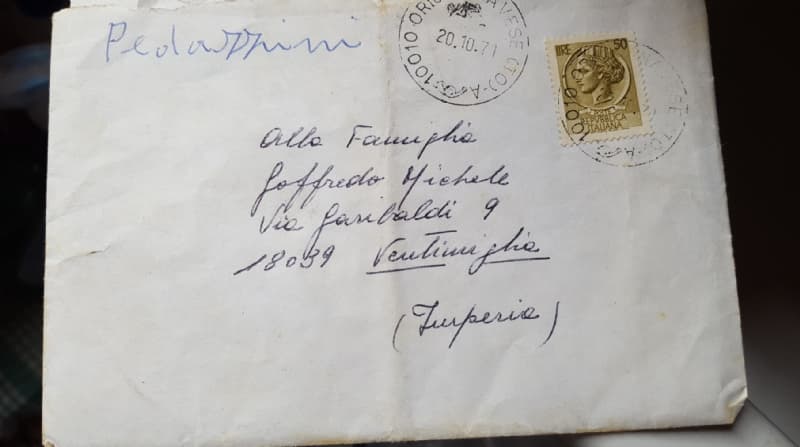 Pedazzini
10010 ORIO CANAVESE (TO)-A
20.10.71
LIRE 50
REPUBBLICA
ITALIANA
10010
(TO)-A
Alla Famiglia
Goffredo Michele
Via Garibaldi 9
18039 Ventimiglia
(Imperia)